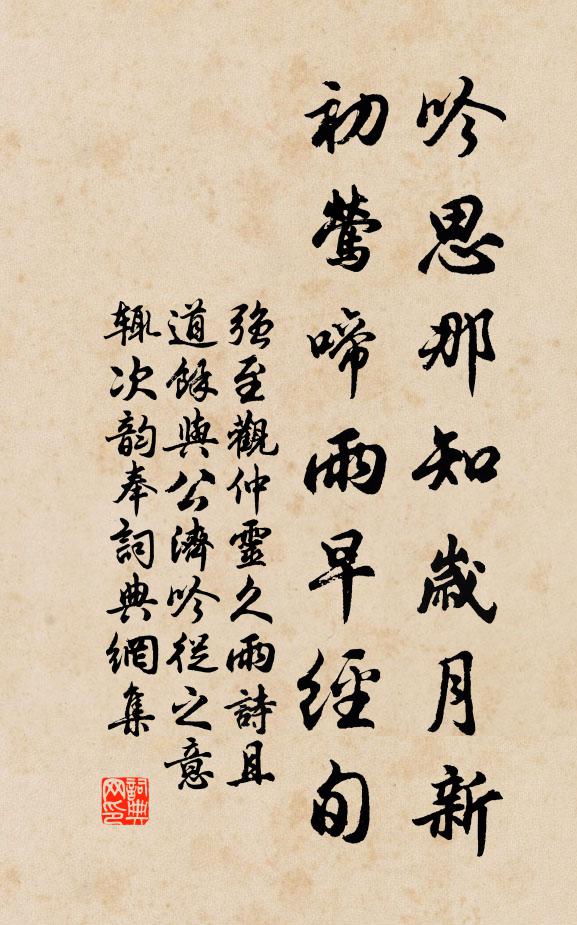 吟思那知歲月新
初鶯啼雨早經旬
強至觀仲靈久雨詩且
道餘與公濟吟從之意
輒次韵奉詞典網集
詞典网印